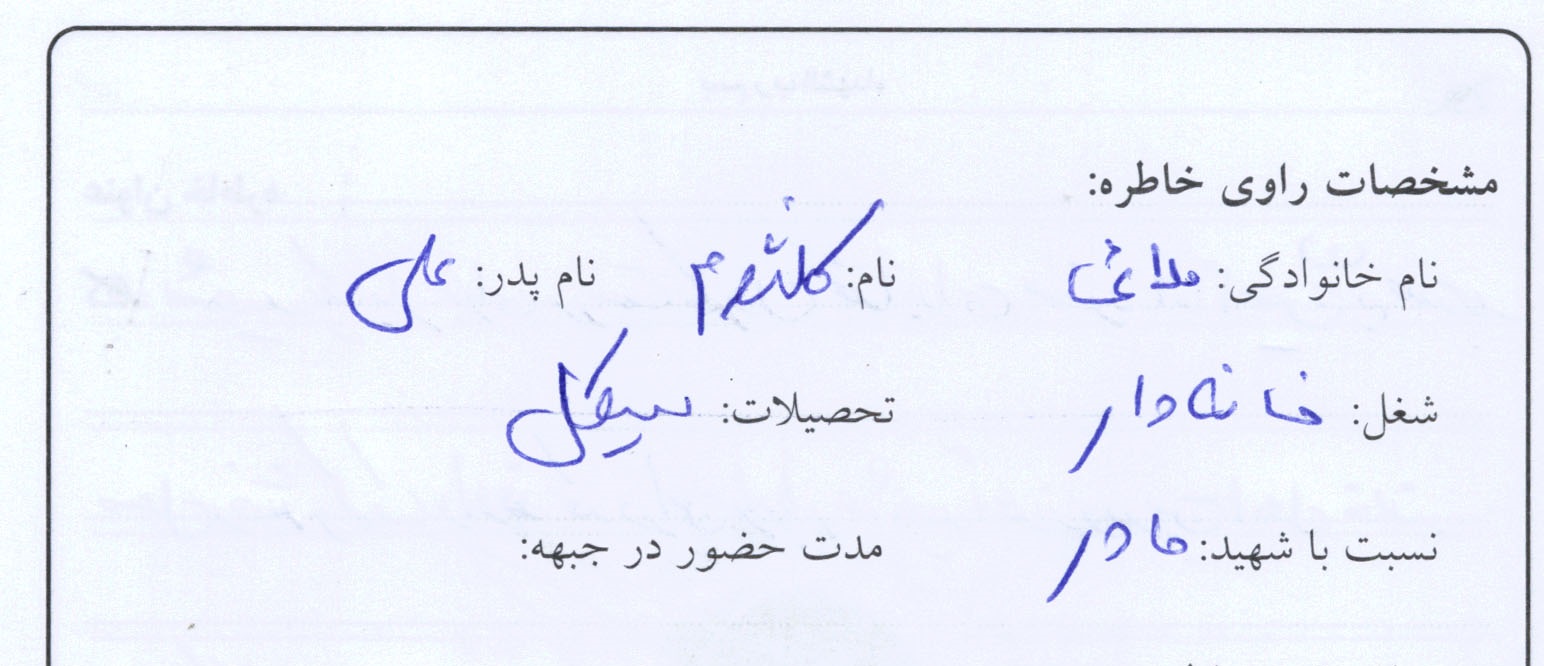 مشخصات راوی خاطره:
نام خانوادگی: ملائی نام: کلثوم نام پدر: علی
شغل: خانه دار تحصیلات: سیکل
نسبت با شهید: مادر مدت حضور در جبهه: